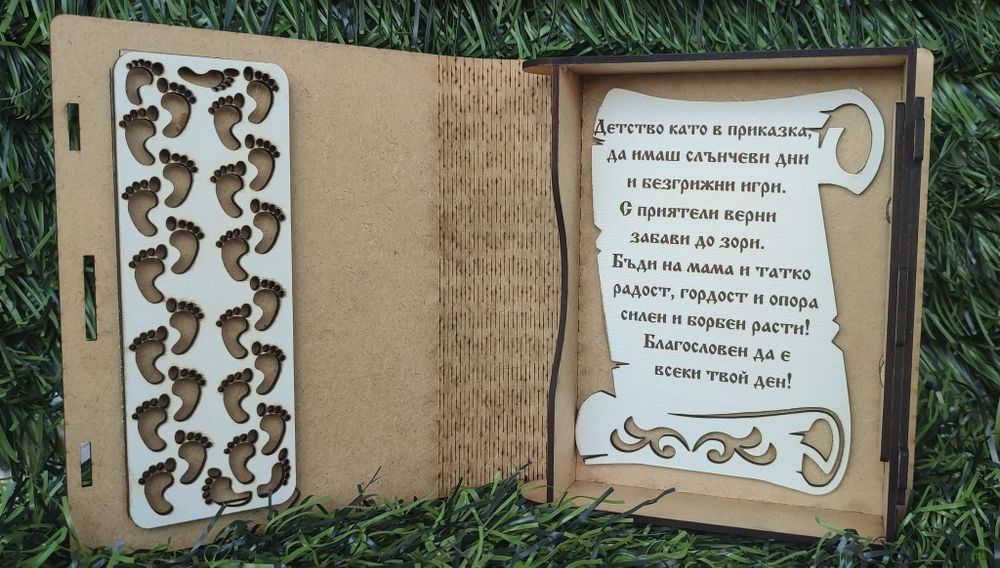 Детство като в приказка,
да имаш слънчеви дни
и безгрижни игри.
С приятели верни
забави до зори.
Бъди на мама и татко
радост, гордост и опора
силен и борбен расти!
Благословен да е
всеки твой ден!